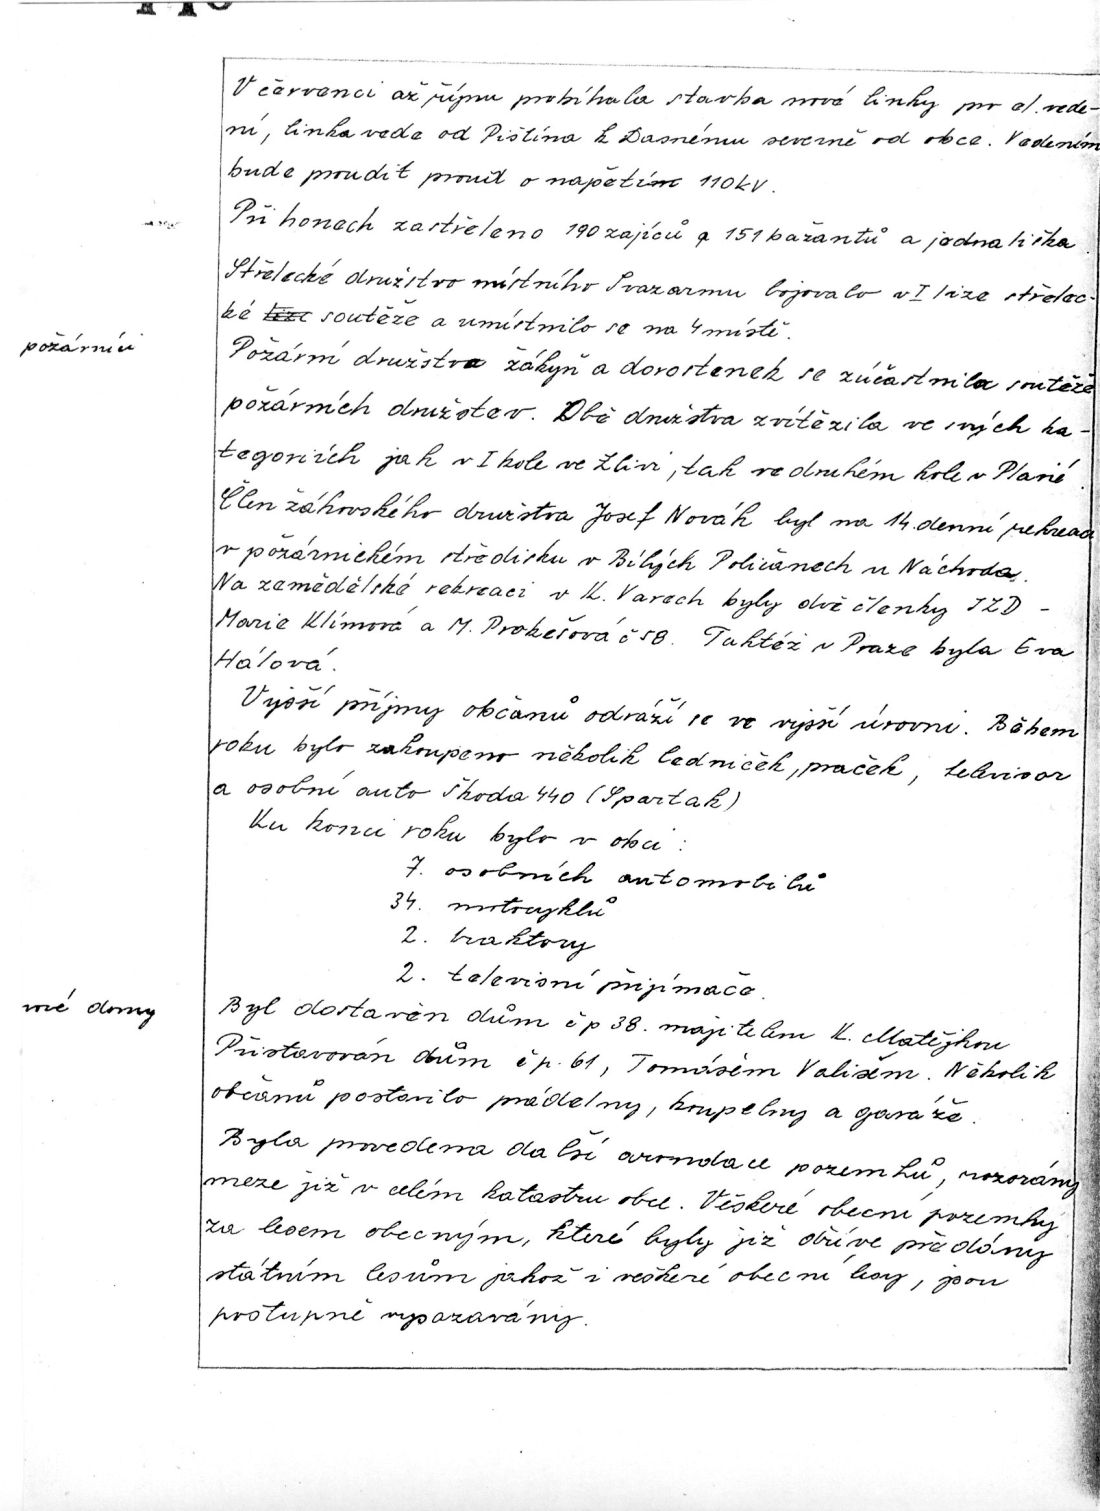 V červenci až říjnu probíhala stavba nové linky pro el. vede-
ní, linka vede od Pištína k Dasnému severně od obce. Vedením
bude proudit proud o napětím 110kV.
Při honech zastřeleno 190 zajíců a 151 bažantů a jedna liška.
Střelecké družstvo místního Svazarmu bojovalo v I lize střelec-
ké lize soutěže a umístnilo se na 4 místě.
požárníci
Požární družstva žákyň a dorostenek se zúčastnila soutěže
požárních družstev. Obě družstva zvítězila ve svých ka-
tegoriích jak v I kole ve Zlivi, tak ve druhém kole v Plavé.
Člen žákovského družstva Josef Novák byl na 14. denní rekreaci
v požárnickém středisku v Bílých Poličanech u Náchoda.
Na zemědělské rekreaci v K. Varech byly dvě členky JZD -
Marie Klímová a M. Prokešová č 58. Taktéž v Praze byla Eva
Hálová.
Vyšší příjmy občanů odráží se ve vyšší úrovni. Během
roku bylo zakoupeno několik ledniček, praček, televisor
a osobní auto Škoda 440 (Spartak)
Ku konci roku bylo v obci :
7. osobních automobilů
34. motocyklů
2. traktory
2. televisní přijímače.
nové domy
Byl dostavěn dům č p 38. majitelem K. Matějkou
Přistavován dům č p. 61, Tomášem Vališem. Několik
občanů postavilo prádelny, koupelny a garáže.
Byla provedena další arondace pozemků, rozorány
meze již v celém katastru obce. Veškeré obecní pozemky
za lesem obecným, které byly již dříve předány
státním lesům jakož i veškeré obecní lesy, jsou
postupně vysazovány.